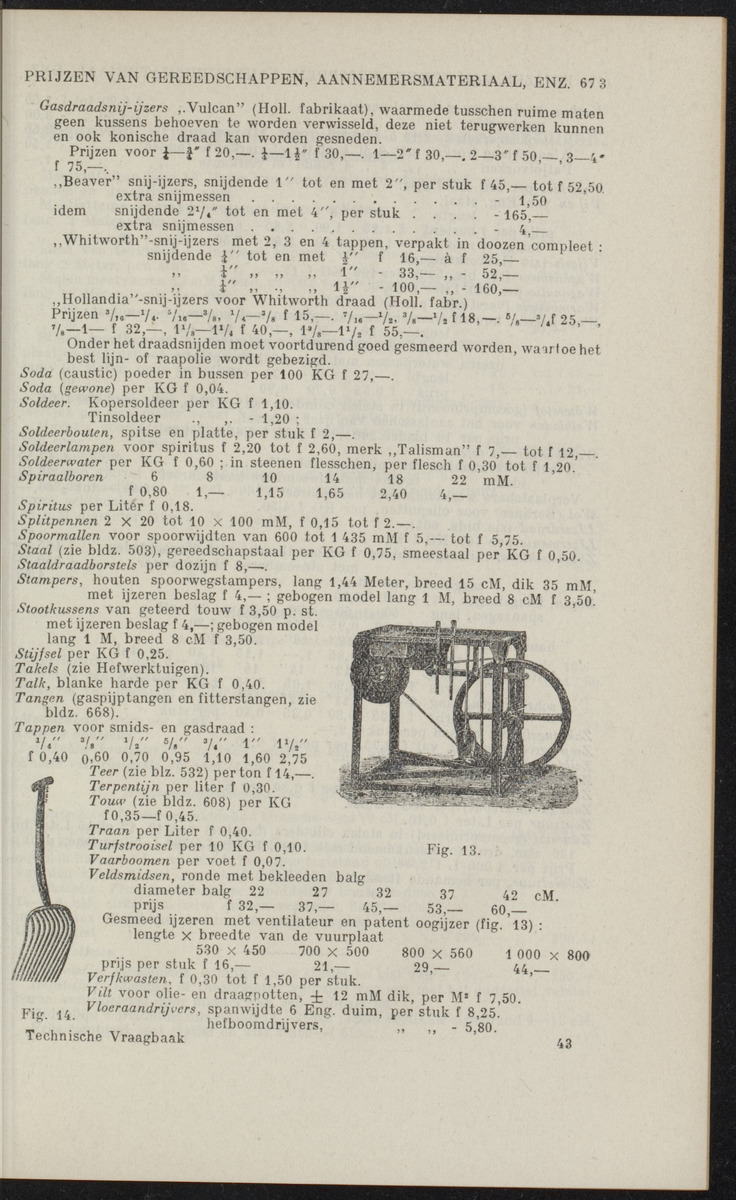 PRIJZEN VAN GEREEDSCHAPPEN, AANNEMERSMATERIAAL, ENZ. 673
Gasdraadsnij-ijzers ,,Vulcan” (Holl. fabrikaat), waarmede tusschen ruime maten
geen kussens behoeven te worden verwisseld, deze niet terugwerken kunnen
en ook konische draad kan worden gesneden.
Prijzen voor ¼—¾″ f 20,—. ½—1½″ f 30,—. 1—2″ f 30,—. 2—3″ f 50,—, 3—4″
f 75,—.
,,Beaver” snij-ijzers, snijdende 1″ tot en met 2″, per stuk f 45,— tot f 52,50.
extra snijmessen . . . . . . . . . . . . - 1,50
idem snijdende 2¹/₄″ tot en met 4″, per stuk . . . . - 165,—
extra snijmessen . . . . . . . . . . . . - 4,—
,,Whitworth”-snij-ijzers met 2, 3 en 4 tappen, verpakt in doozen compleet :
snijdende ¼″ tot en met ½″ f 16,— à f 25,—
,, ¼″ ,, ,, ,, 1″ - 33,— ,, - 52,—
,, ¼″ ,, ,, ,, 1½″ - 100,— ,, - 160,—
,,Hollandia”-snij-ijzers voor Whitworth draad (Holl. fabr.)
Prijzen ³/₁₆—¹/₄. ⁵/₁₆—³/₈, ¹/₄—³/₈ f 15,—. ⁷/₁₆—¹/₂, ³/₈—¹/₂ f 18,—. ⁵/₈—³/₄ f 25,—,
⁷/₈—1— f 32,—, 1¹/₈—1¹/₄ f 40,—, 1³/₈—1¹/₂ f 55,—.
Onder het draadsnijden moet voortdurend goed gesmeerd worden, waartoe het
best lijn- of raapolie wordt gebezigd.
Soda (caustic) poeder in bussen per 100 KG f 27,—.
Soda (gewone) per KG f 0,04.
Soldeer. Kopersoldeer per KG f 1,10.
Tinsoldeer ,, ,, - 1,20 ;
Soldeerbouten, spitse en platte, per stuk f 2,—.
Soldeerlampen voor spiritus f 2,20 tot f 2,60, merk ,,Talisman” f 7,— tot f 12,—.
Soldeerwater per KG f 0,60 ; in steenen flesschen, per flesch f 0,30 tot f 1,20.
Spiraalboren 6 8 10 14 18 22 mM.
f 0,80 1,— 1,15 1,65 2,40 4,—
Spiritus per Liter f 0,18.
Splitpennen 2 × 20 tot 10 × 100 mM, f 0,15 tot f 2.—.
Spoormallen voor spoorwijdten van 600 tot 1 435 mM f 5,— tot f 5,75.
Staal (zie bldz. 503), gereedschapstaal per KG f 0,75, smeestaal per KG f 0,50.
Staaldraadborstels per dozijn f 8,—.
Stampers, houten spoorwegstampers, lang 1,44 Meter, breed 15 cM, dik 35 mM,
met ijzeren beslag f 4,— ; gebogen model lang 1 M, breed 8 cM f 3,50.
Stootkussens van geteerd touw f 3,50 p. st.
met ijzeren beslag f 4,—; gebogen model
lang 1 M, breed 8 cM f 3,50.
Stijfsel per KG f 0,25.
Takels (zie Hefwerktuigen).
Talk, blanke harde per KG f 0,40.
Tangen (gaspijptangen en fitterstangen, zie
bldz. 668).
Tappen voor smids- en gasdraad :
¹/₄″ ³/₈″ ¹/₂″ ⁵/₈″ ³/₄″ 1″ 1¹/₂″
f 0,40 0,60 0,70 0,95 1,10 1,60 2,75
Teer (zie blz. 532) per ton f 14,—.
Terpentijn per liter f 0,30.
Touw (zie bldz. 608) per KG
f 0,35—f 0,45.
Traan per Liter f 0,40.
Turfstrooisel per 10 KG f 0,10.
Fig. 13.
Vaarboomen per voet f 0,07.
Veldsmidsen, ronde met bekleeden balg
diameter balg 22 27 32 37 42 cM.
prijs f 32,— 37,— 45,— 53,— 60,—
Gesmeed ijzeren met ventilateur en patent oogijzer (fig. 13) :
lengte × breedte van de vuurplaat
530 × 450 700 × 500 800 × 560 1 000 × 800
prijs per stuk f 16,— 21,— 29,— 44,—
Verfkwasten, f 0,30 tot f 1,50 per stuk.
Vilt voor olie- en draagpotten, ± 12 mM dik, per M² f 7,50.
Fig. 14. Vloeraandrijvers, spanwijdte 6 Eng. duim, per stuk f 8,25.
hefboomdrijvers, ,, ,, - 5,80.
Technische Vraagbaak 43